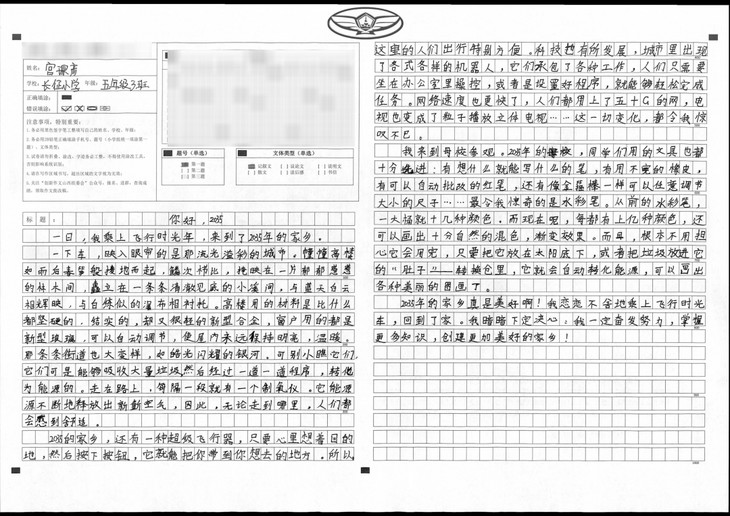 姓名：
学校：长征小学 年级：五年级3班
正确填涂：
错误填涂：
注意事项，特别重要：
题号（单选）
第一题
第二题
第三题
文体类型（单选）
记叙文 议论文 说明文
散文 读后感 书信
标题： 你好，2035
一日，我乘上飞行时光车，来到了2035年的家乡。
一下车，映入眼帘的是那流光溢彩的城市。幢幢高楼
如雨后春笋般拔地而起，鳞次栉比，掩映在一片郁郁葱葱
的林木间，矗立在一条条清澈见底的小溪间，与蓝天白云
相辉映，与白练似的瀑布相衬托。高楼用的材料是比什么
都坚硬的、结实的，却又很轻的新型合金，窗户用的都是
新型玻璃，可以自动调节，使屋内永远保持明亮，温暖。
那条条街道也大变样，如皓光闪耀的银河。可别小瞧它们，
它们可是能够吸收大量垃圾然后经过一道一道程序，转化
为能源的。走在路上，每隔一段就有一个制氧仪。它能源
源不断地释放出新新空气，因此，无论走到哪里，人们都
会感到舒适。
2035的家乡，还有一种超级飞行器，只要心里想着目的
地，然后按下按钮，它就能把你带到你想去的地方。所以，
这里的人们出行特别方便。科技超有所发展，城市里出现
了各式各样的机器人，它们承包了各种工作，人们只需要
坐在办公室里操控，或者是设置好程序，就能够轻松完成
任务。网络速度也更快了，人们都用上了五十G的网，电
视也变成了粒子播放立体电视……这一切变化，都令我惊
叹不已。
我来到母校参观。2035年的，同学们用的文具也都
十分先进：有想什么就能写什么的笔，有用不完的橡皮，
有可以自动批改的红笔，还有像金箍棒一样可以任意调节
大小的尺子……最令我惊奇的是水彩笔。从前的水彩笔，
一大福就十几种颜色。而现在呢，每都有上亿种颜色，还
可以画出十分自然的混色，渐变效果。而且，根本不用担
心它会用完，只要把它放在太阳底下，或者把垃圾放进它
的“肚子”——转换仓里，它就会自动转化能源，可以写出
各种美丽的图画了。
2035年的家乡真是美好啊！我恋恋不舍地乘上飞行时光
车，回到了家。我暗暗下定决心：我一定奋发努力，掌握
更多知识，创建更加美好的家乡！